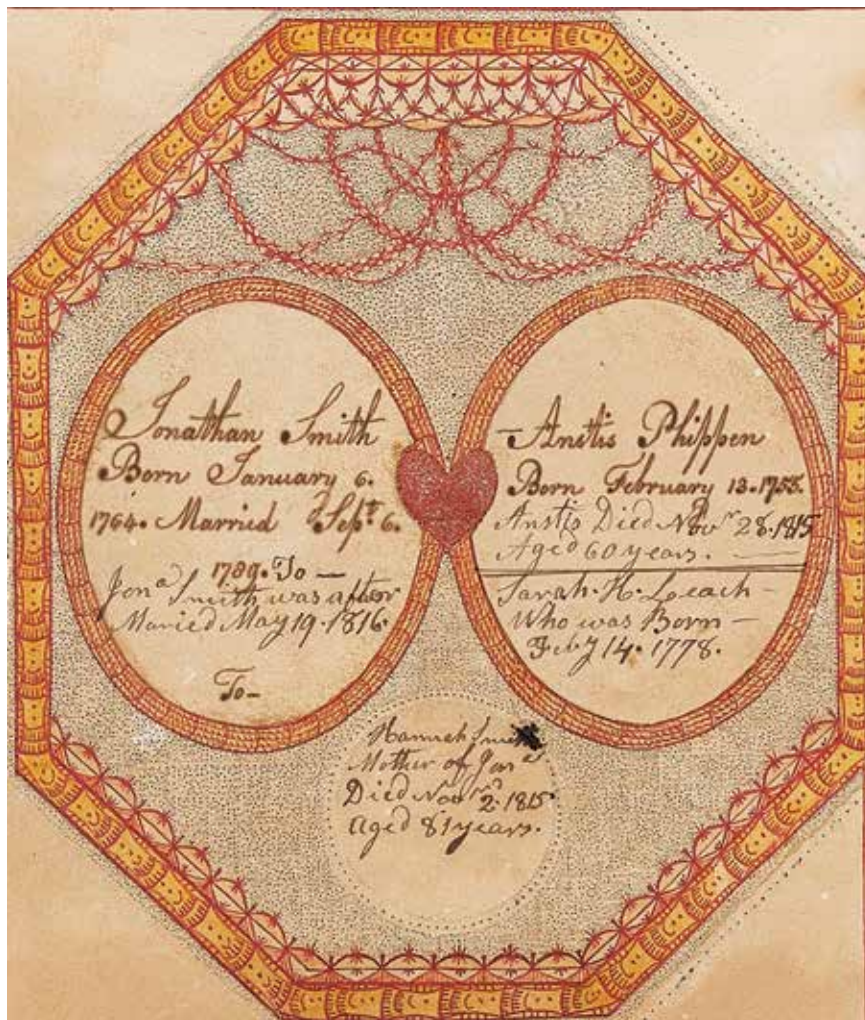 Jonathan Smith
Born January 6.
1764. Married Sept. 6.
1789. To —
Jona. Smith was after
Maried May 19. 1816.
To —
— Anstis Phippen
Born February 13. 1755.
Anstis Died Novr. 28. 1815
Aged 60 years. —
Sarah. H. Leach —
Who was Born —
Feby 14. 1778.
Hannah Smith
Mother of Jona.
Died Novr. 2. 1815
Aged 81 years.